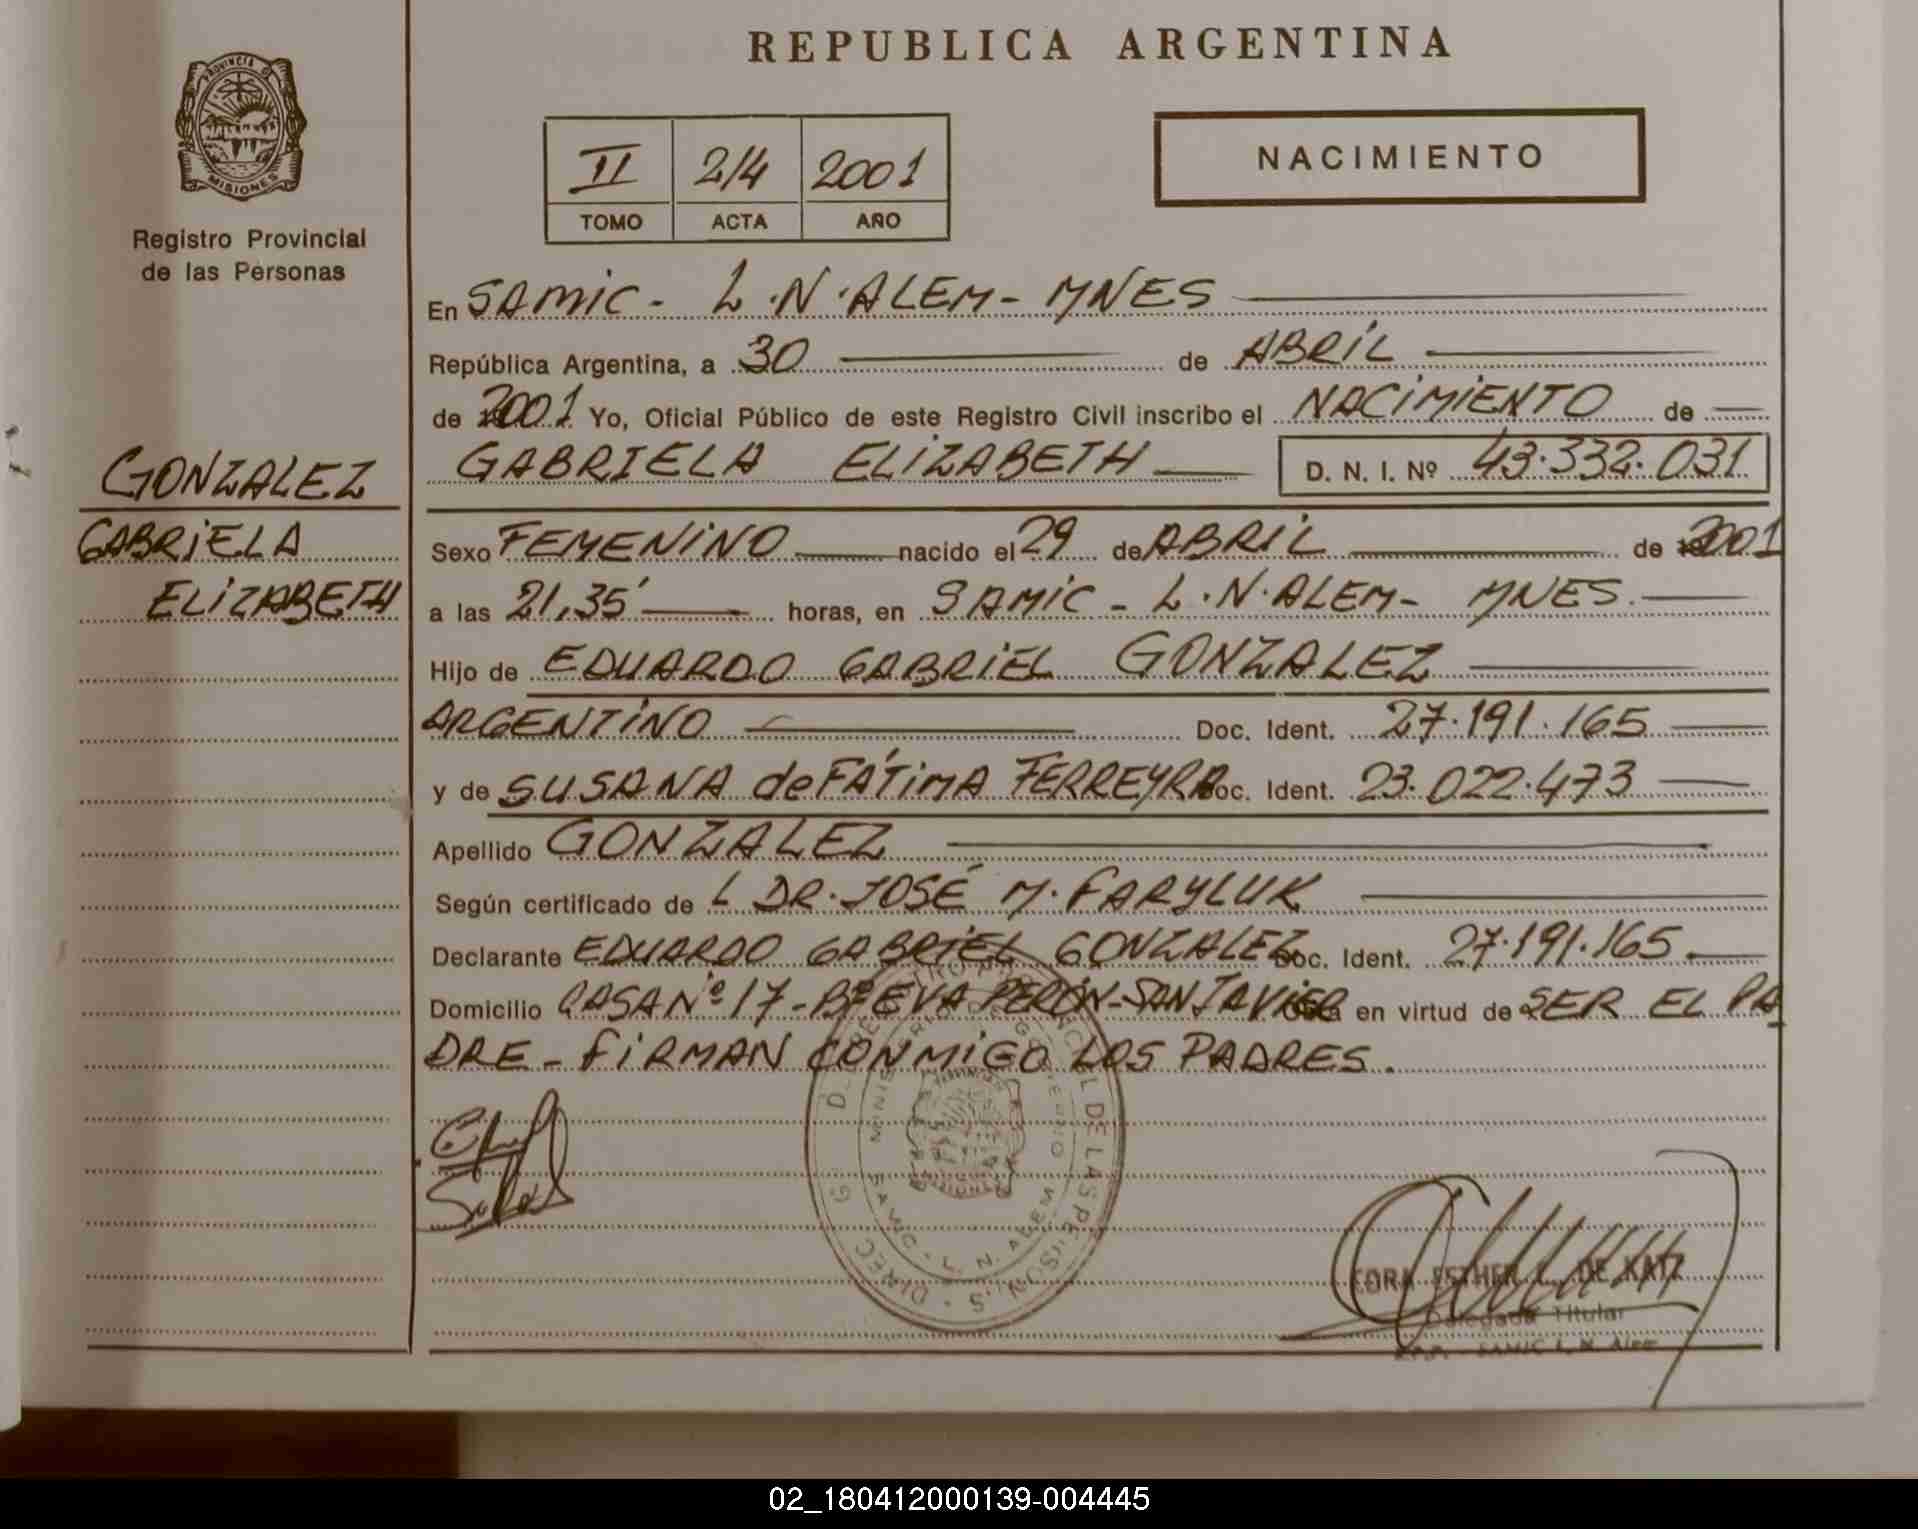 REPUBLICA ARGENTINA
PROVINCIA DE
MISIONES
Registro Provincial
de las Personas
II 214 2001
TOMO ACTA AÑO
NACIMIENTO
En SAMIC - L.N.ALEM - MNES
República Argentina, a 30 de ABRIL
de 2001 Yo, Oficial Público de este Registro Civil inscribo el NACIMIENTO de
GABRIELA ELIZABETH D. N. I. Nº 43.332.031
GONZALEZ
GABRIELA
ELIZABETH
Sexo FEMENINO nacido el 29 de ABRIL de 2001
a las 21,35' horas, en SAMIC - L.N.ALEM - MNES.
Hijo de EDUARDO GABRIEL GONZALEZ
ARGENTINO Doc. Ident. 27.191.165
y de SUSANA de FÁTIMA FERREYRA Doc. Ident. 23.022.473
Apellido GONZALEZ
Según certificado de L DR. JOSÉ M. FARYLUK
Declarante EDUARDO GABRIEL GONZALEZ Doc. Ident. 27.191.165.
Domicilio CASA Nº 17 - Bº EVA PERÓN - SAN JAVIER Obra en virtud de SER EL PA
DRE - FIRMAN CONMIGO LOS PADRES.
MINISTERIO DE GOBIERNO
SAMIC - L. N. ALEM
CORA ESTHER L. DE KATZ
Delegada Titular
SAMIC L. N. Alem
02_180412000139-004445